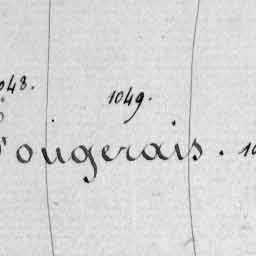 1049.
Fougerais.